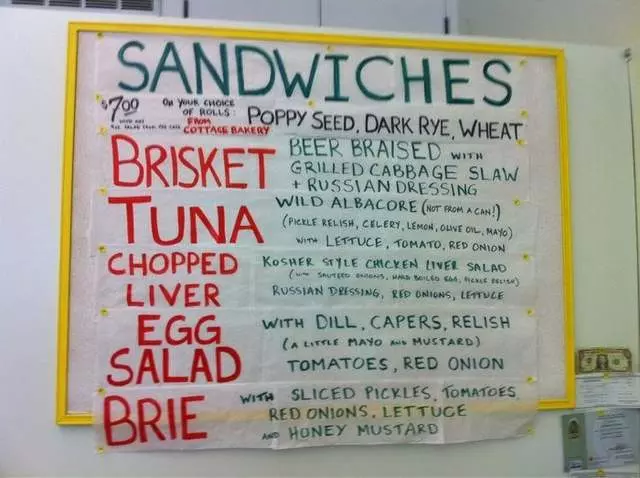 SANDWICHES
$7.00 ON YOUR CHOICE OF ROLLS: POPPY SEED, DARK RYE, WHEAT
FROM COTTAGE BAKERY
BRISKET BEER BRAISED WITH
GRILLED CABBAGE SLAW
+ RUSSIAN DRESSING
TUNA WILD ALBACORE (NOT FROM A CAN!)
(PICKLE RELISH, CELERY, LEMON, OLIVE OIL, MAYO)
WITH LETTUCE, TOMATO, RED ONION
CHOPPED LIVER KOSHER STYLE CHICKEN LIVER SALAD
(WITH SAUTEED ONIONS, HARD BOILED EGG, PICKLE RELISH)
RUSSIAN DRESSING, RED ONIONS, LETTUCE
EGG SALAD WITH DILL, CAPERS, RELISH
(A LITTLE MAYO AND MUSTARD)
TOMATOES, RED ONION
BRIE WITH SLICED PICKLES, TOMATOES
RED ONIONS, LETTUCE
AND HONEY MUSTARD